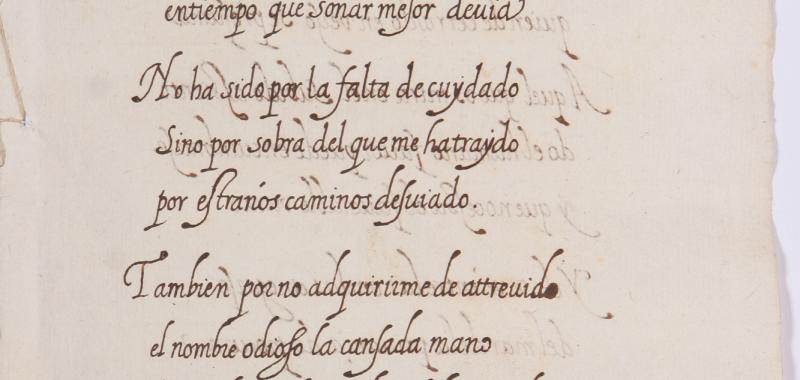 entiempo que sonar mejor deuia
No ha sido por la falta de cuydado
Sino por sobra del que me ha traydo
por estranós caminos desuiado.
Tambien por no adquirirme de attreuido
el nombre odioso la cansada mano